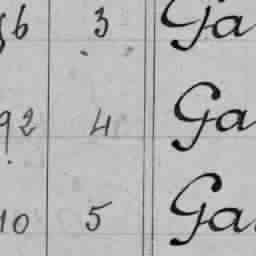 56 3 Ga
92 4 Ga
10 5 Ga